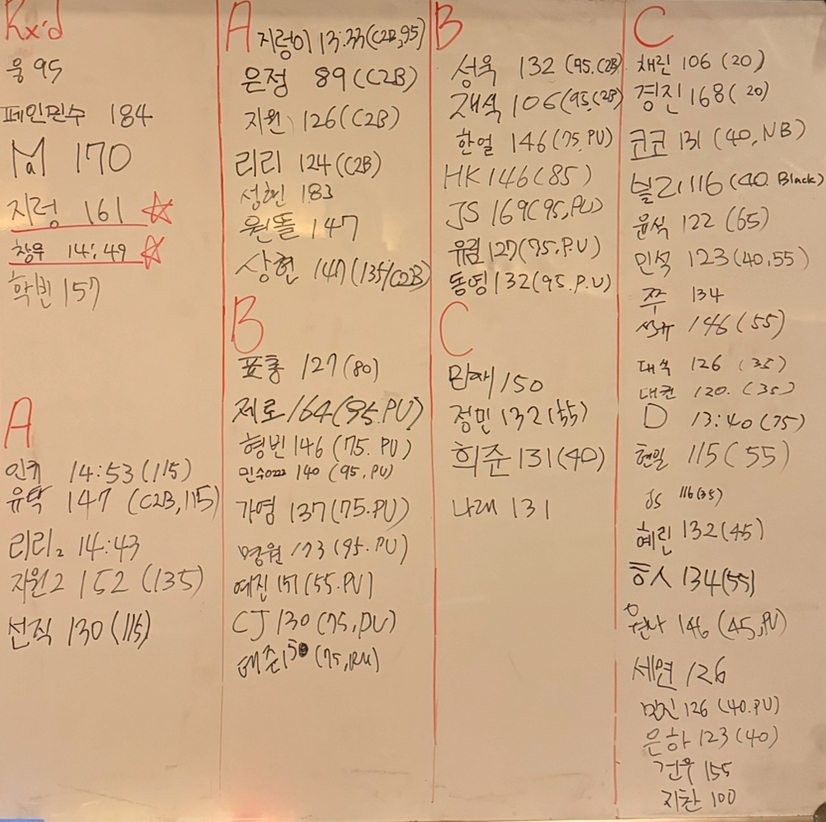 Rx'd
웅 95
페인민수 184
Ma1 170
지렁 161 ☆
창우 14:49 ☆
학빈 157
A
인키 14:53 (115)
유탁 147 (C2B, 115)
리리2 14:43
지원2 152 (135)
선직 130 (115)
A
지렁이 13:33 (C2B, 95)
은정 89 (C2B)
지원 126 (C2B)
리리 124 (C2B)
성현 183
원똘 147
상현 147 (135/C2B)
B
표홍 127 (80)
제로 164 (95. PU)
형빈 146 (75. PU)
민수 140 (95, PU)
가영 137 (75. PU)
명원 173 (95. PU)
예진 151 (55. PU)
CJ 130 (75, PU)
태준 (75, PU)
B
성욱 132 (95. C2B)
재석 106 (95, C2B)
한얼 146 (75. PU)
HK 146 (85)
JS 169 (95, PU)
유림 127 (75, P.U)
동영 132 (95. P.U)
C
민재 150
정민 132 (55)
희준 131 (40)
나래 131
C
채린 106 (20)
경진 168 (20)
코코 131 (40, NB)
116 (40. Black)
윤석 122 (65)
민석 123 (40, 55)
쭈 134
146 (55)
대석 126 (35)
대권 120. (35)
D 13:40 (75)
현일 115 (55)
JS 116 (35)
혜린 132 (45)
134 (55)
146 (45, PU)
세연 126
민진 126 (40. PU)
은하 123 (40)
건우 155
지찬 100